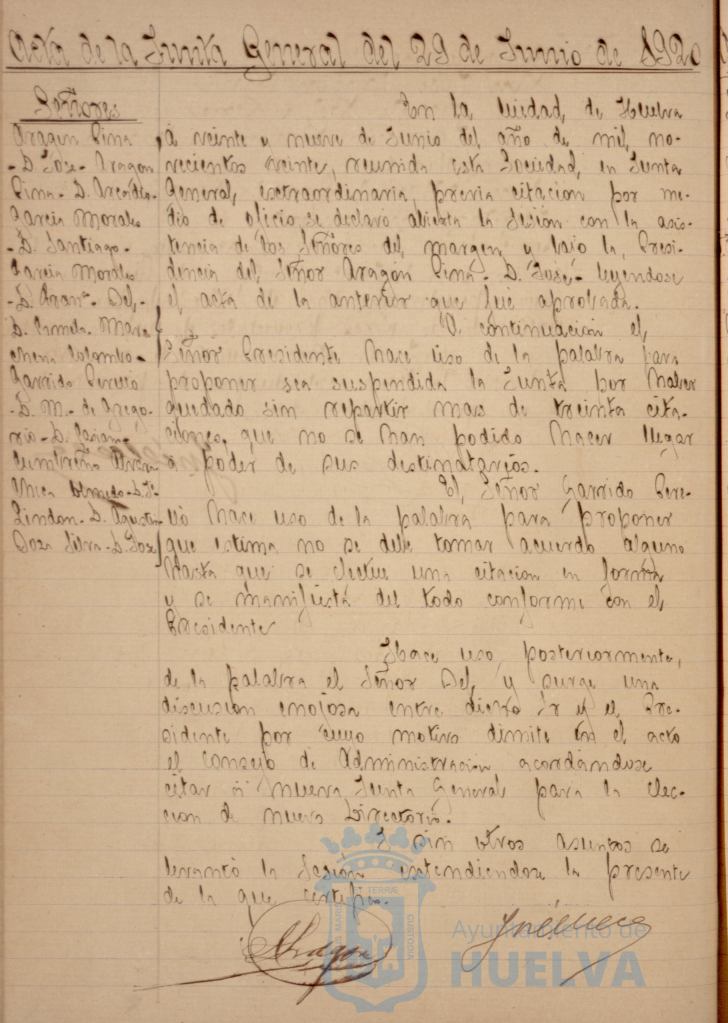 Acta de la Junta General del 29 de Junio de 1920
Señores
Aragon Pina
- D. Jose - Aragon
Pina - D. Arcadio
Garcia Morales
- D. Santiago -
Garcia Morales
- D. Fran.co - Del,
D. Camilo - Mara
chena Colombo -
Garrido Perello
- D. M. - de Grego-
rio - D.
Cumbreño
Olmedo - D. Jo
Rindon - D. Agustin
Silva - D. Jose
En la Ciudad, de Huelva
á veinte y nueve de Junio del año de mil, no-
vecientos veinte, reunida esta Sociedad, en Junta
General, extraordinaria, previa citacion por me-
dio de oficio se declaro abierta la Sesion con la asis-
tencia de los Señores del margen y bajo la, Presi-
dencia del, Señor Aragon Pina - D. José - leyendose
el acta de la anterior que fue aprobada.
A continuacion el,
Señor Presidente hace uso de la palabra para
proponer sea suspendida la Junta por haber
quedado sin repartir mas de treinta cita-
ciones, que no se han podido hacer llegar
a poder de sus destinatarios.
El, Señor Garrido Pere-
lló hace uso de la palabra para proponer
que estima no se debe tomar acuerdo alguno
hasta que se efectue una citacion en forma
y se manifiesta del todo conforme con el
Presidente
Hace uso, posteriormente,
de la palabra el Señor Del, y surge una
discusion enojosa entre dicho Sr y el Pre-
sidente por cuyo motivo dimite en el acto
el Consejo de Administracion acordandose
citar á nueva Junta General para la elec-
cion de nuevo Directorio.
Y sin otros asuntos se
levantó la Sesion extendiendose la presente
de la que certifico.
Aragon
Ayuntamiento de
HUELVA